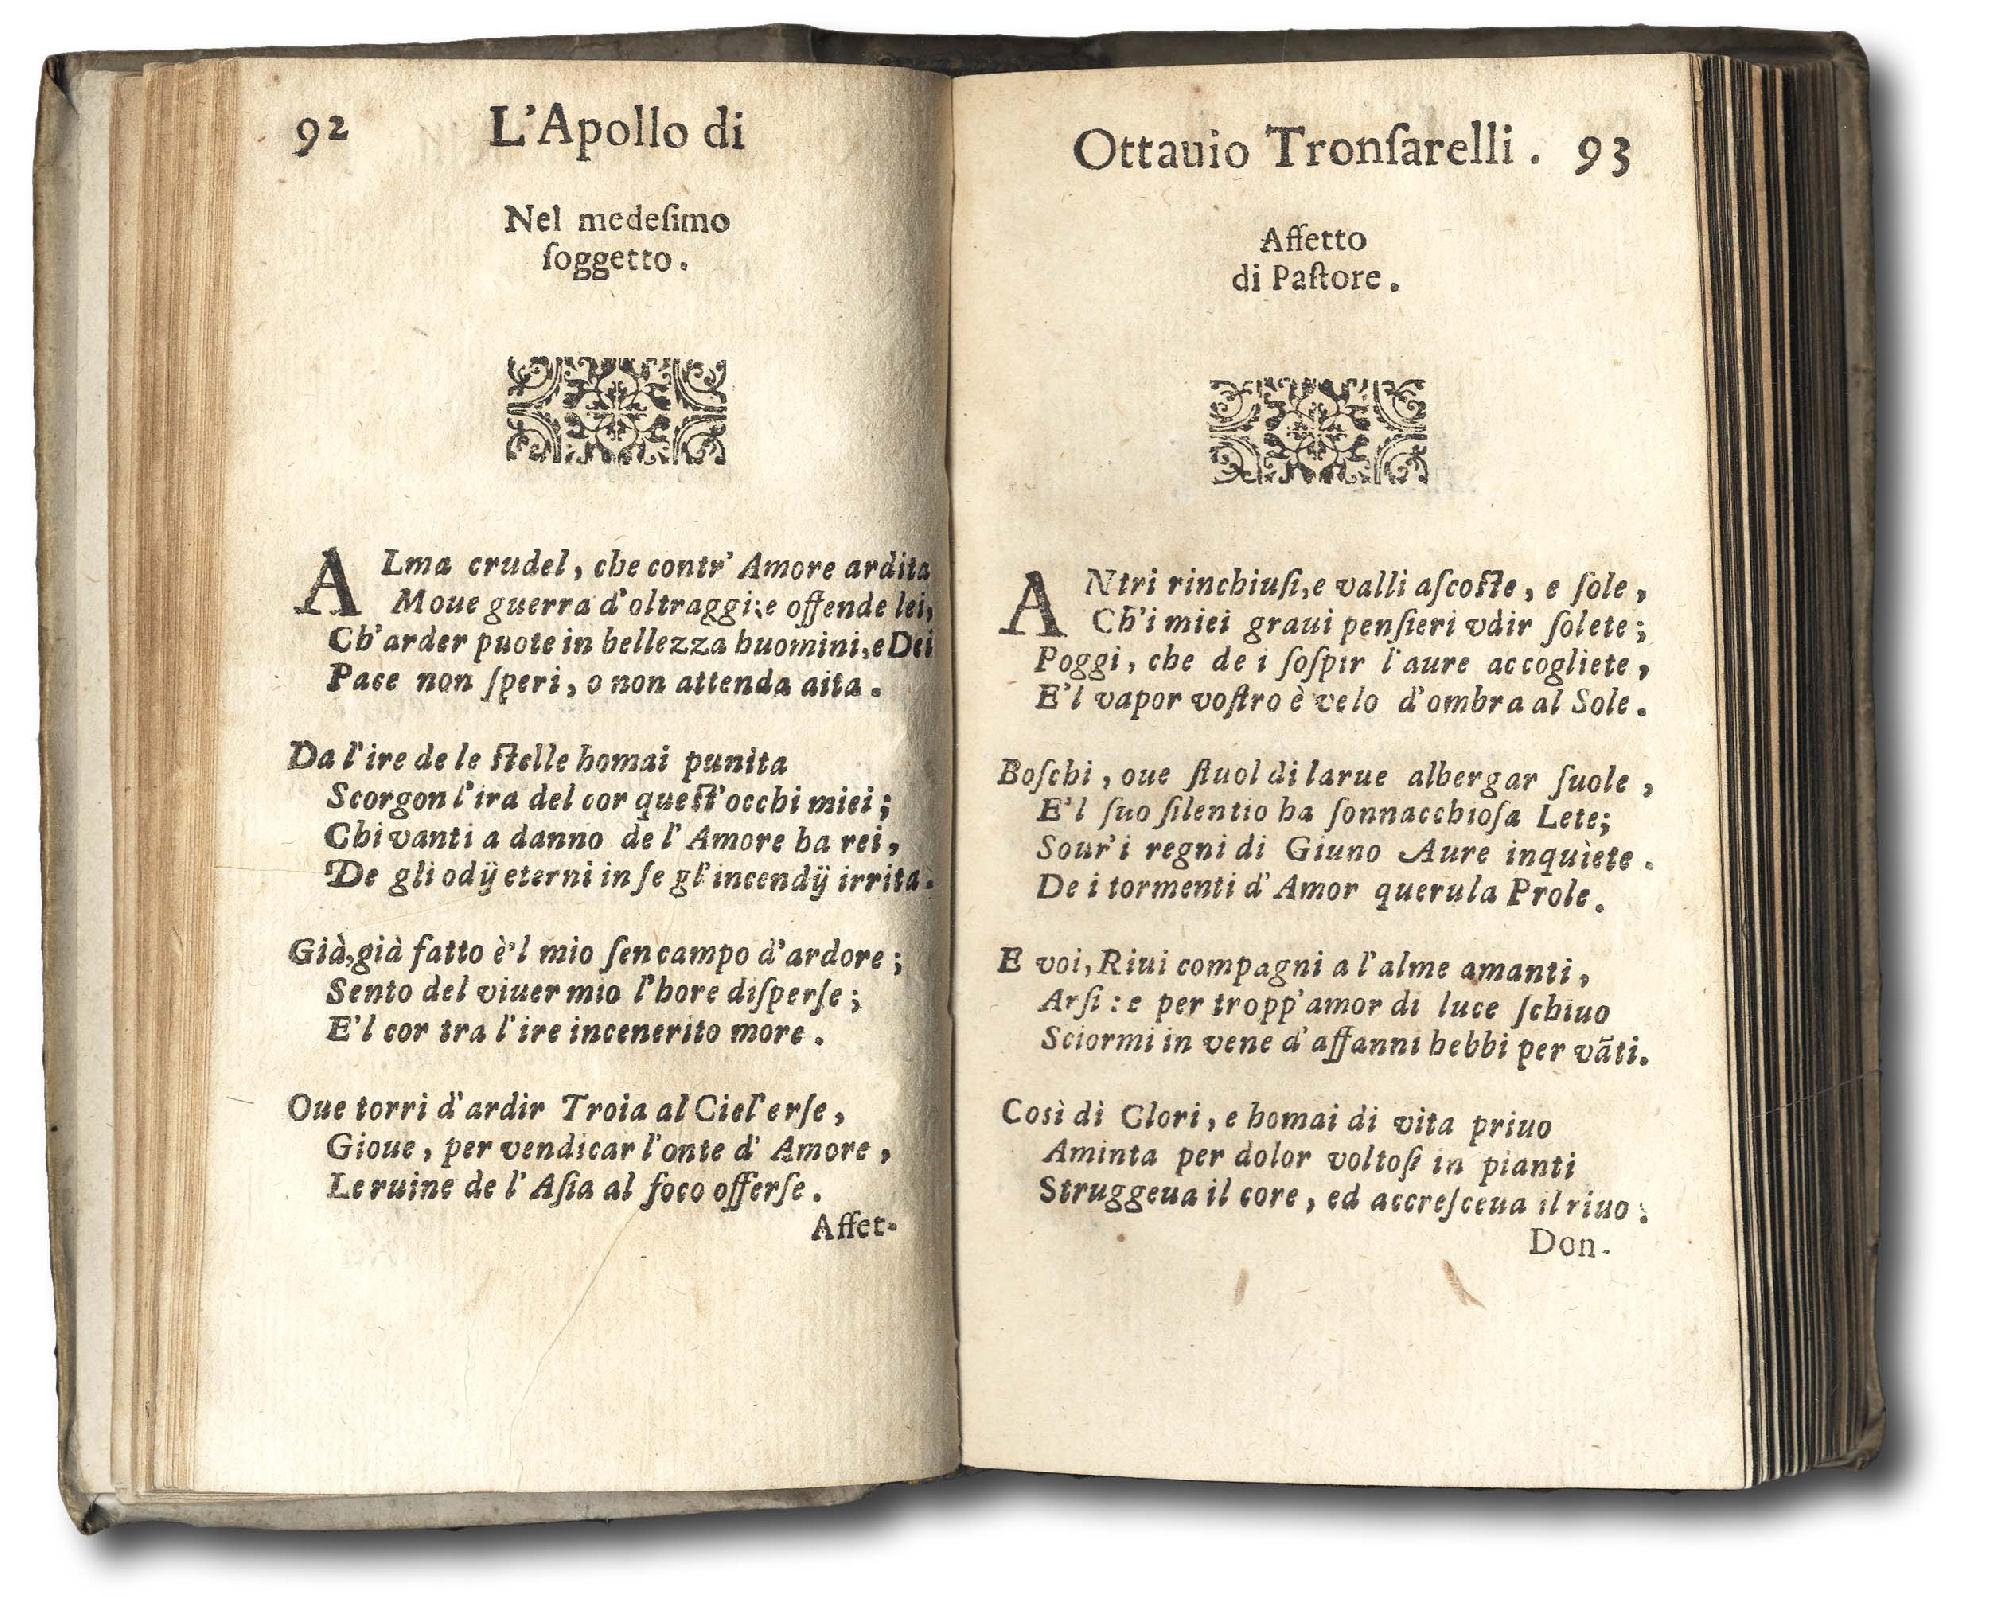 92 L'Apollo di
Nel medeſimo
ſoggetto.
ALma crudel, che contr' Amore ardita
Moue guerra d'oltraggi;e offende lei,
Ch'arder puote in bellezza huomini,e Dei
Pace non ſperi, o non attenda aita.
Da l'ire de le ſtelle homai punita
Scorgon l'ira del cor queſt'occhi miei;
Chi vanti a danno de l'Amore ha rei,
De gli odij eterni in ſe gl'incendij irrita.
Già,già fatto è'l mio ſen campo d'ardore;
Sento del viuer mio l'hore diſperſe;
E'l cor tra l'ire incenerito more.
Oue torri d'ardir Troia al Ciel'erſe,
Gioue, per vendicar l'onte d'Amore,
Le ruine de l'Aſia al foco offerſe.
Affet-
Ottauio Tronſarelli. 93
Affetto
di Paſtore.
ANtri rinchiuſi,e valli aſcoſte, e ſole,
Ch'i miei graui penſieri vdir ſolete;
Poggi, che de i ſoſpir l'aure accogliete,
E'l vapor voſtro è velo d'ombra al Sole.
Boſchi, oue ſtuol di larue albergar ſuole,
E'l ſuo ſilentio ha ſonnacchioſa Lete;
Sour'i regni di Giuno Aure inquiete.
De i tormenti d'Amor querula Prole.
E voi, Riui compagni a l'alme amanti,
Arſi: e per tropp'amor di luce ſchiuo
Sciormi in vene d'affanni hebbi per vãti.
Così di Clori, e homai di vita priuo
Aminta per dolor voltoſi in pianti
Struggeua il core, ed accreſceua il riuo.
Don-